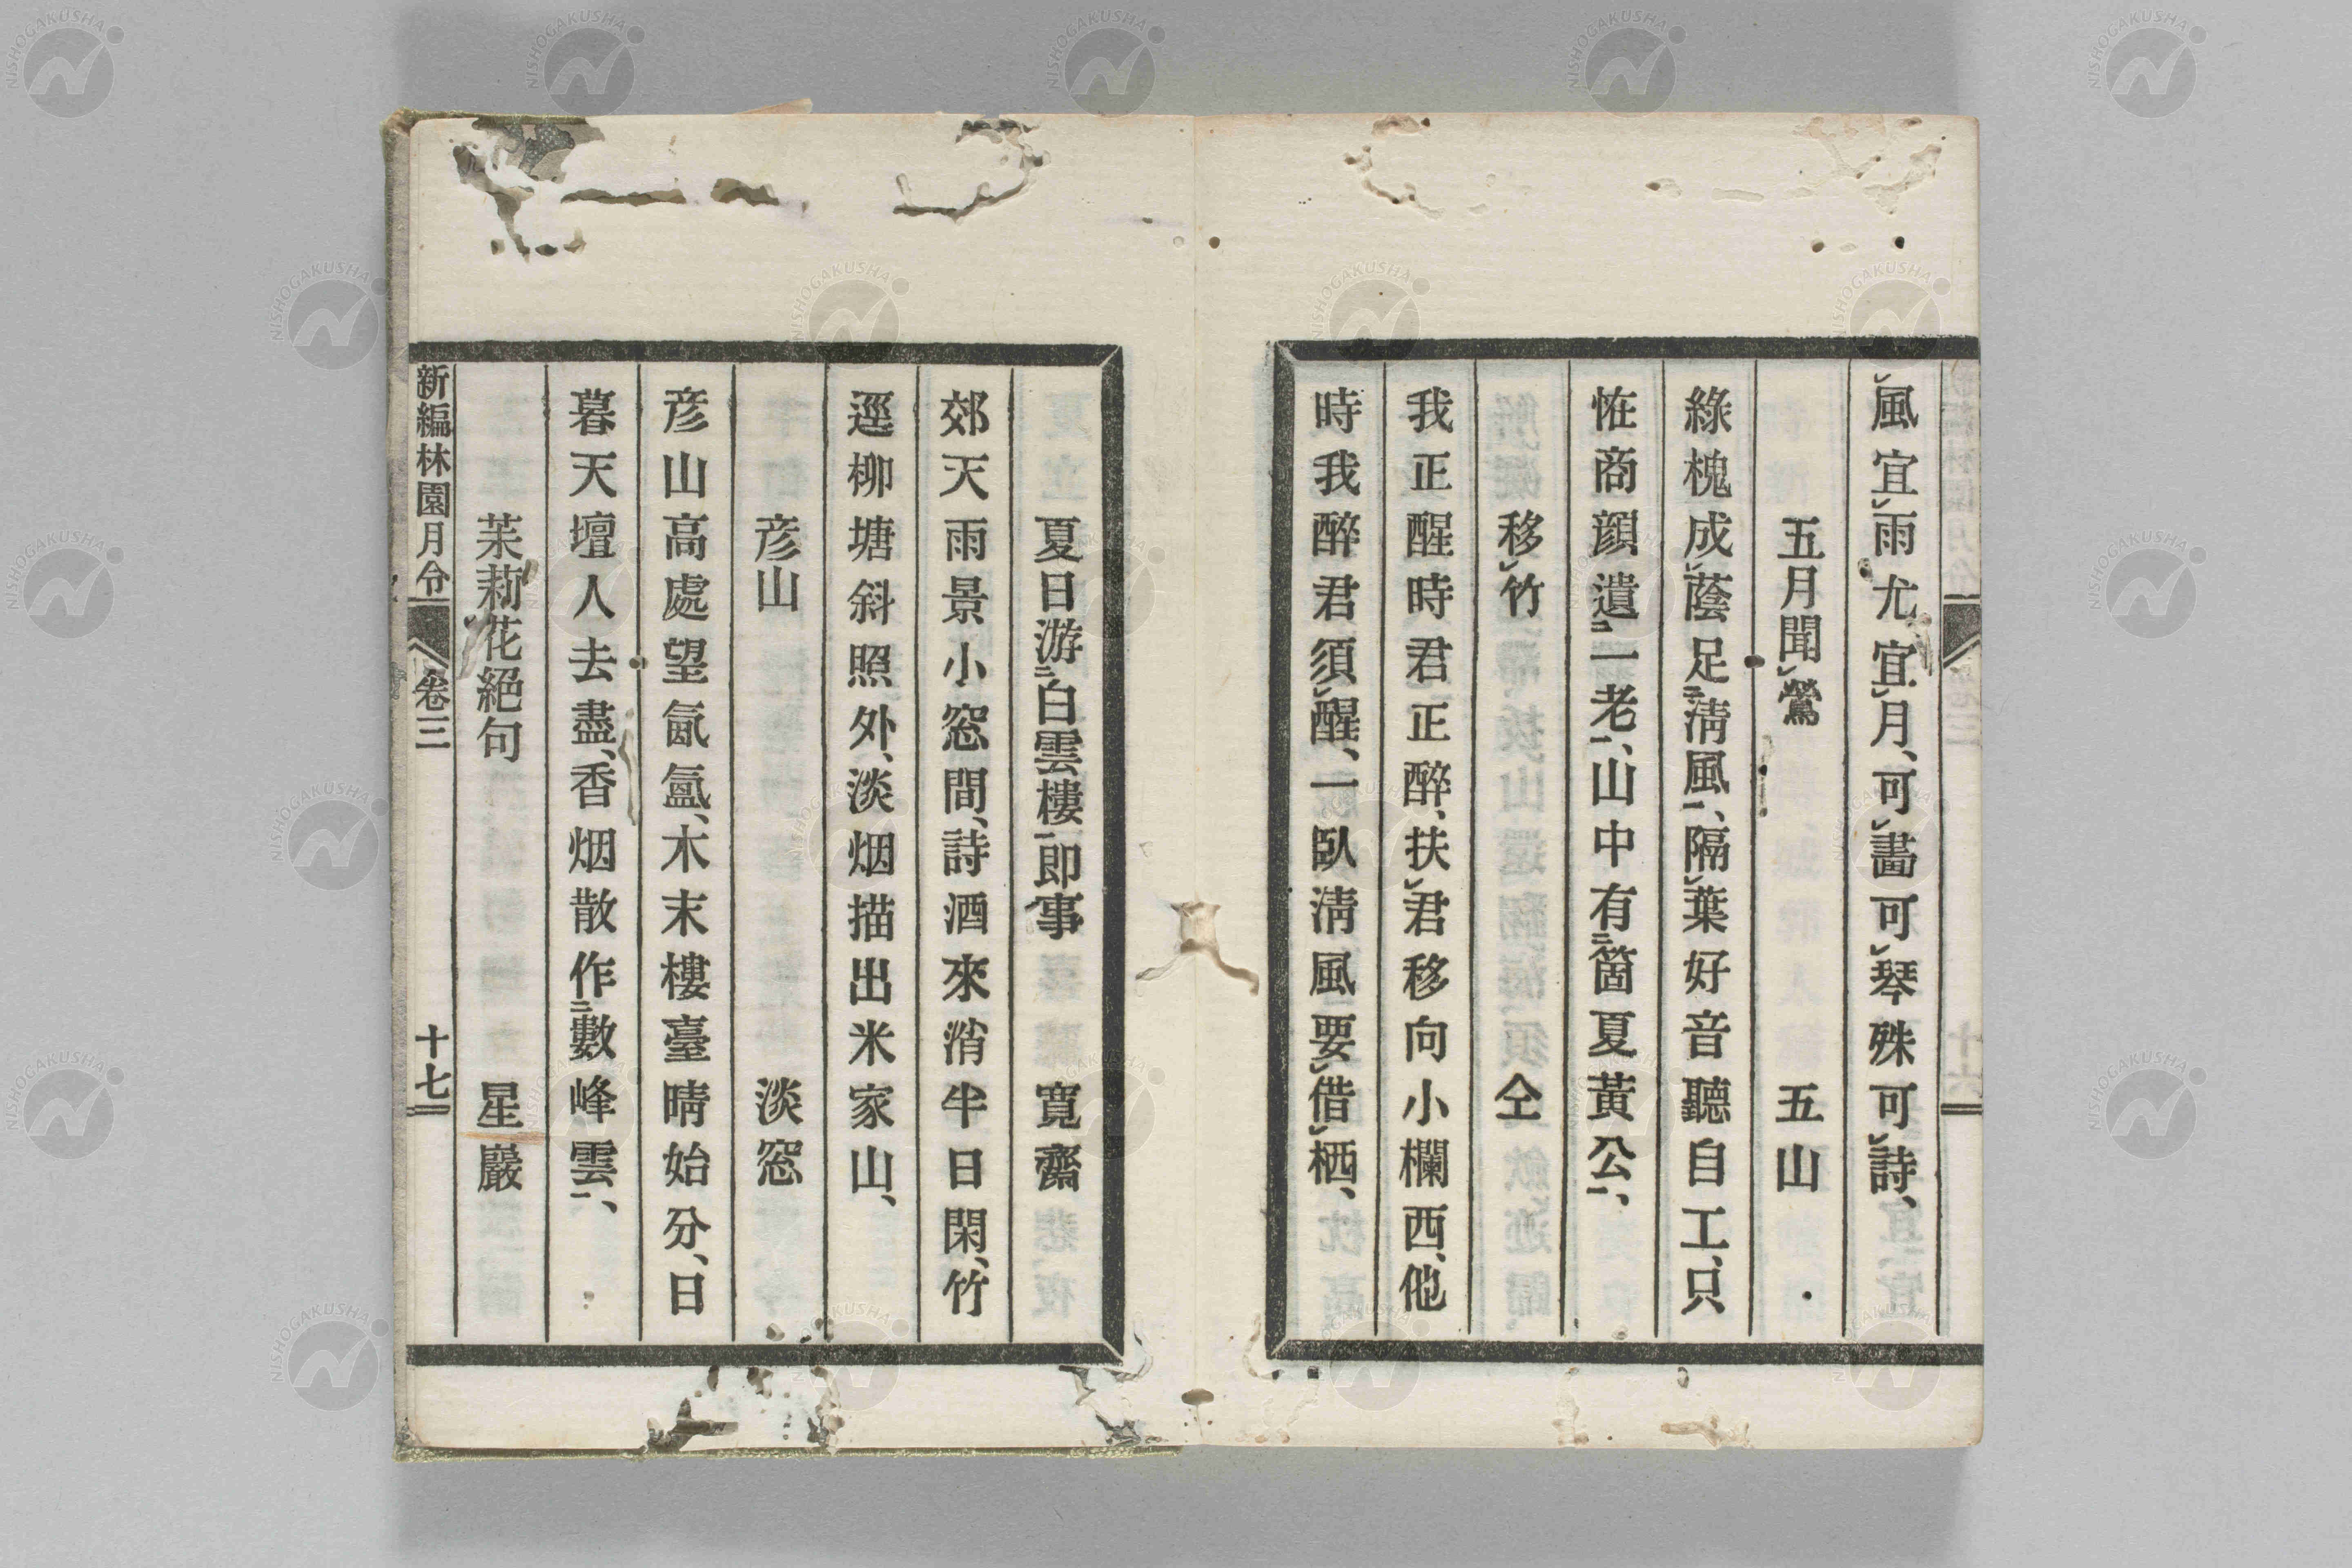 風宜㆑雨尤宜㆑月、可㆑畵可㆑琴殊可㆑詩、
五月聞㆑鶯　五山
綠槐成㆑蔭足㆓淸風㆒、隔㆑葉好音聽自工、只
恠商顔遺㆓一老㆒、山中有㆓箇夏黃公㆒、
移㆑竹　仝
我正醒時君正醉、扶㆑君移向小欄西、他
時我醉君須㆑醒、一臥淸風要㆑借㆑栖、
夏日游㆓白雲樓㆒即事　寬齋
郊天雨景小窓間、詩酒來消半日閑、竹
逕柳塘斜照外、淡烟描出米家山、
彦山　淡窓
彦山高處望氤氳、木末樓臺晴始分、日
暮天壇人去盡、香烟散作㆓數峰雲㆒、
茉莉花絕句　星巖
新編林園月令　卷三　十七
NISHOGAKUSHA